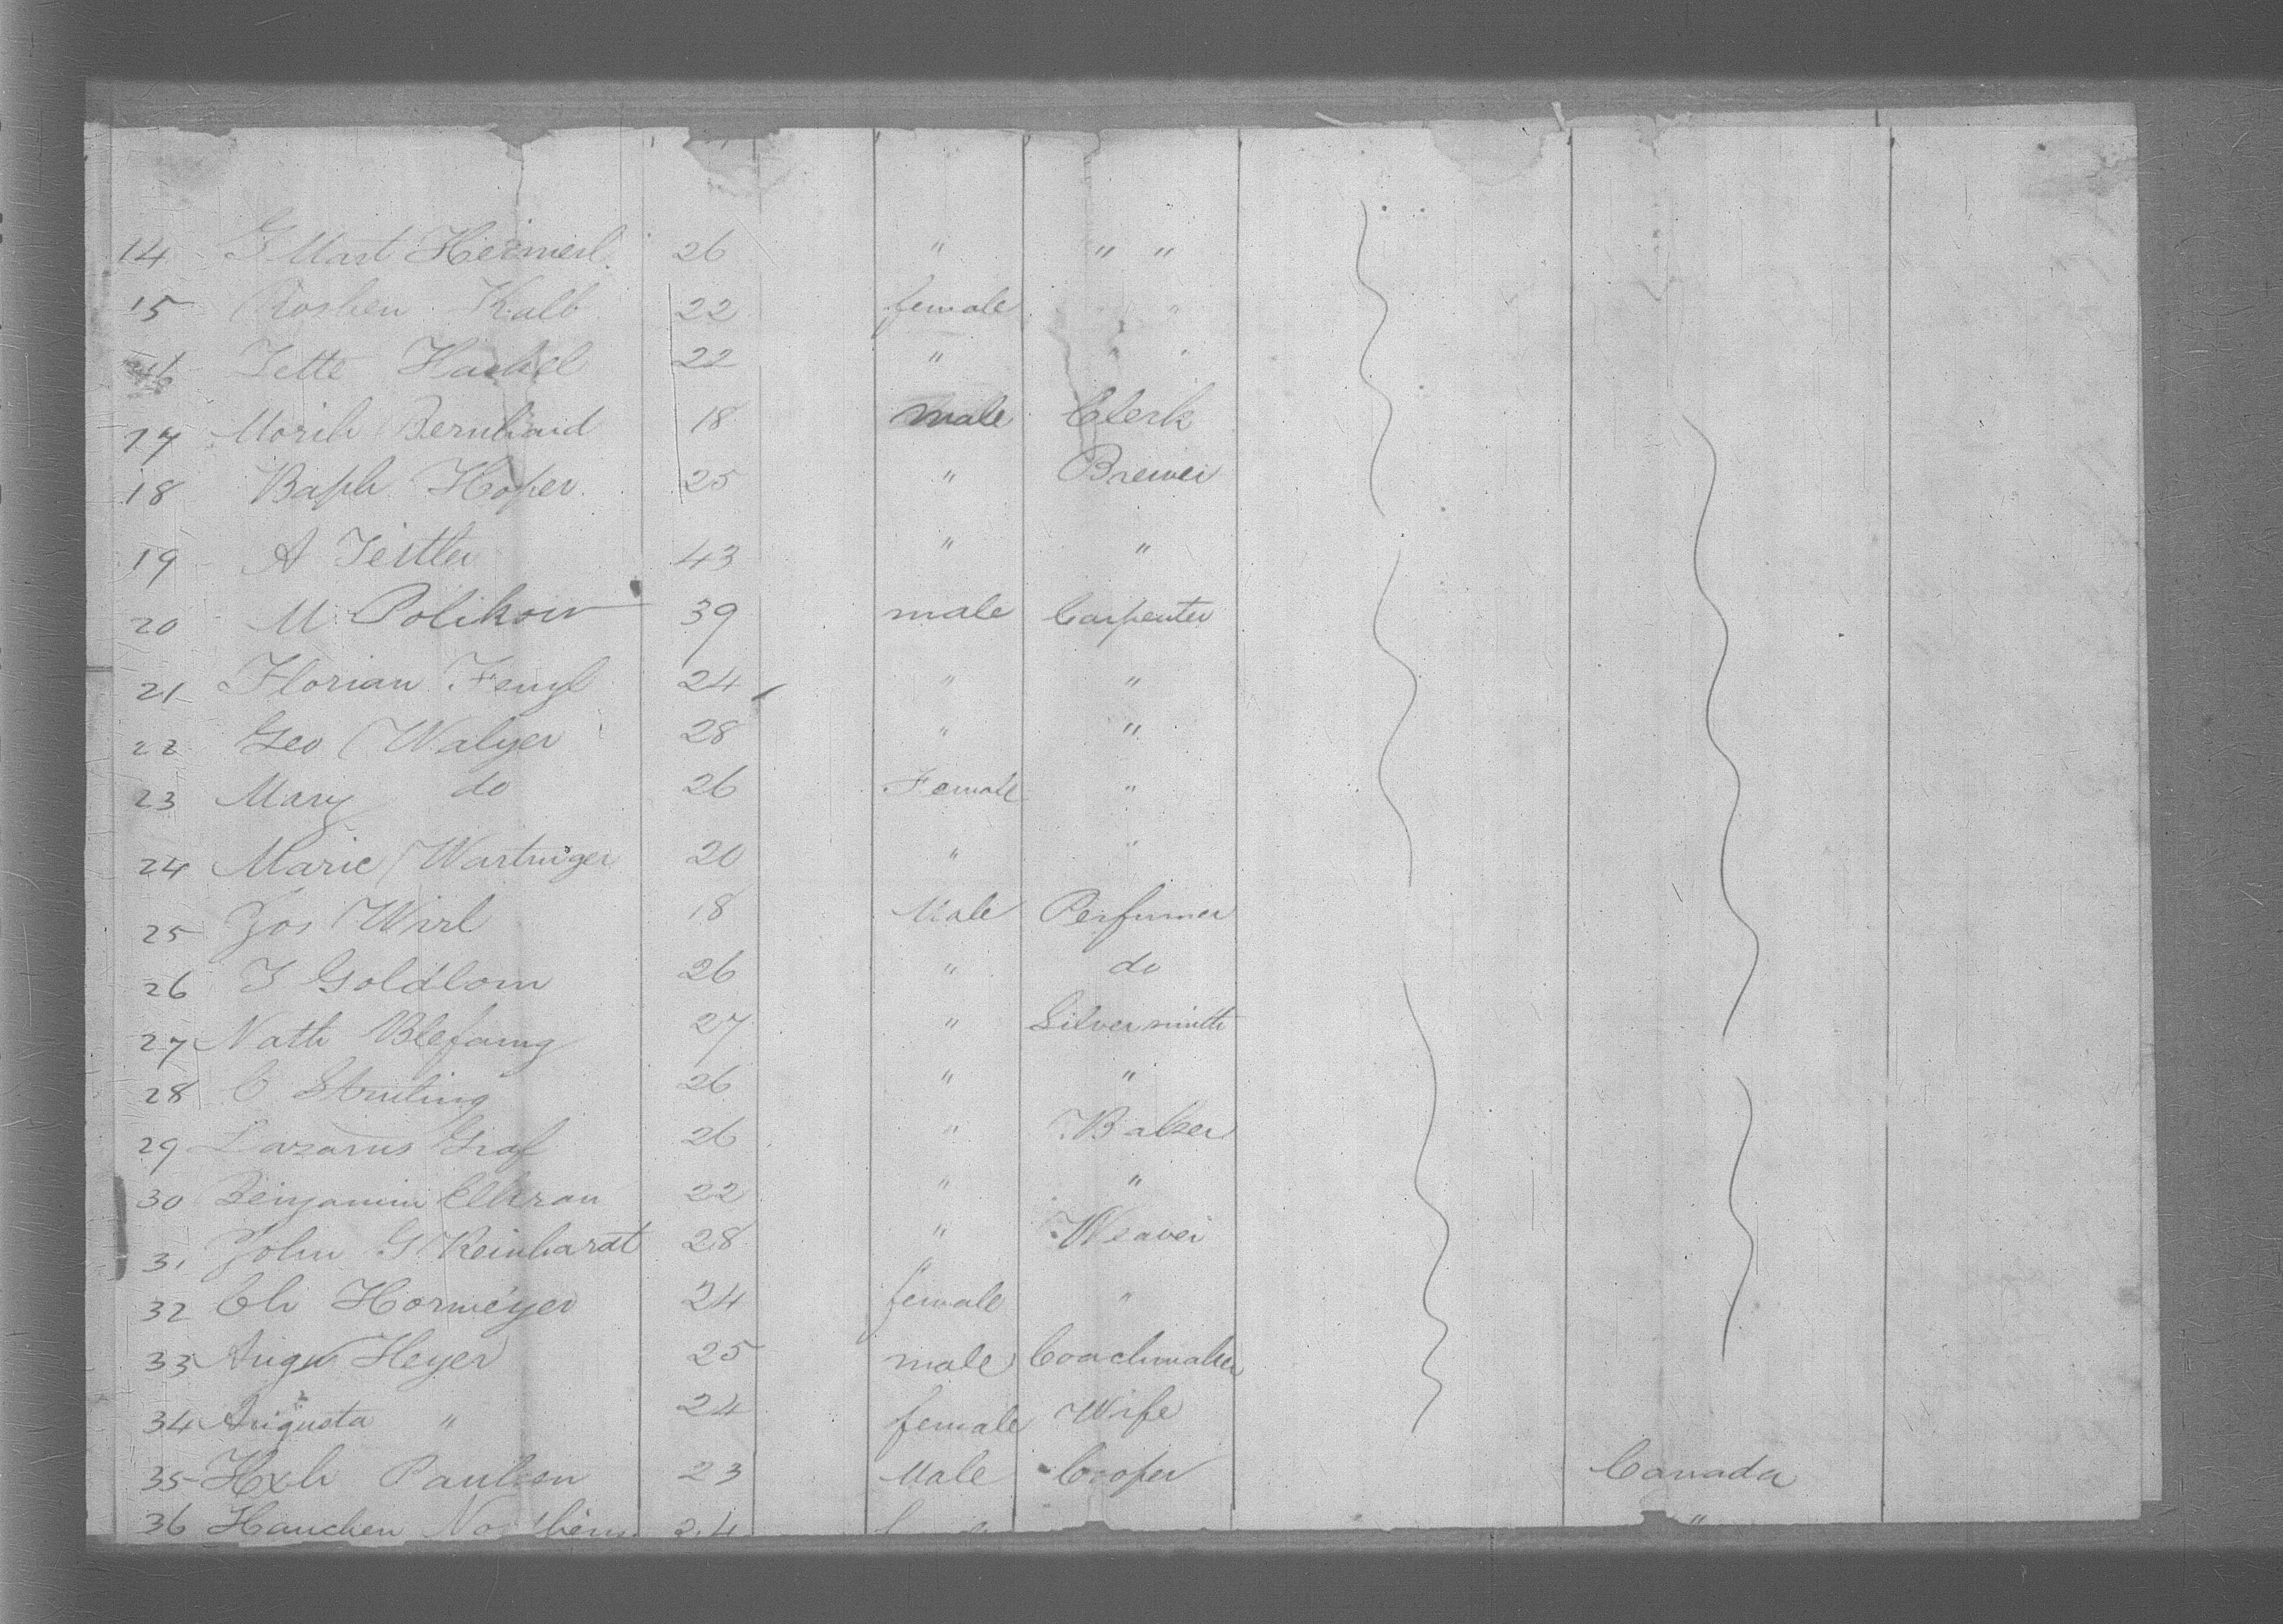 14 G Mart Heimerl 26 " " "
15 Roshen Kalb 22 female " "
16 Jette Hachel 22 " " "
17 Morih Bernhard 18 male Clerk
18 Baph Hofer 25 " Brewer
19 A Teittler 43 " "
20 M Polikow 39 male Carpenter
21 Florian Fenyl 24 " "
22 Geo Walyer 28 " "
23 Mary do 26 Female "
24 Marie Wartinger 20 " "
25 Jos Wirl 18 Male Perfumer
26 J Goldlom 26 " do
27 Nath 27 " Silversmith
28 C 26 " "
29 Lazarus Graf 26 " Baker
30 Benjamin Elkran 22 " "
31 John G Reinhardt 28 " Weaver
32 Ch Hormeyer 24 female "
33 Augu Heyer 25 male Coachmaker
34 Augusta " 24 female Wife
35 Paulsen 23 Male Cooper Canada
36 Hanchen 24 "